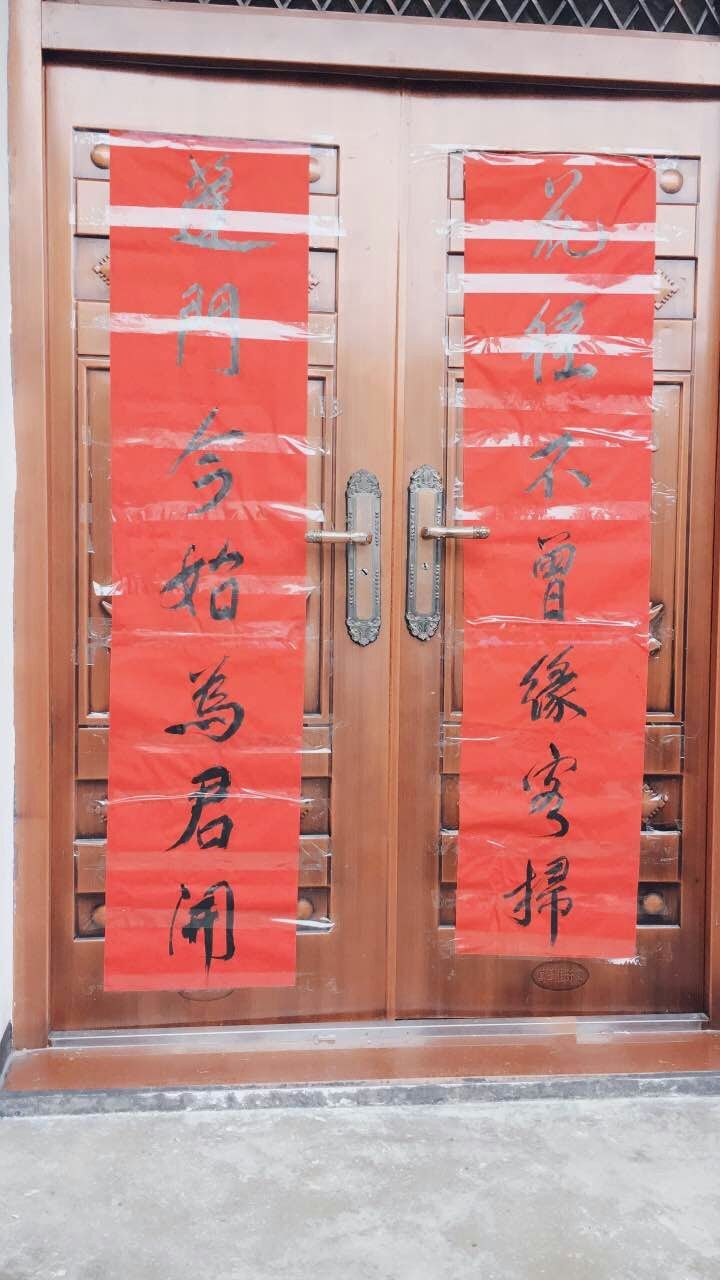 花徑不曾緣客掃
蓬門今始為君開